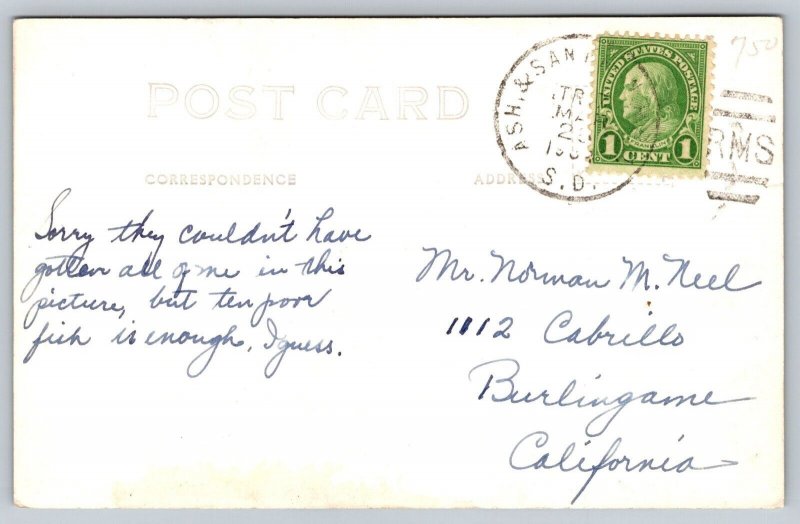 750
POST CARD
CORRESPONDENCE
ADDRESS
ASH. & SAN
TR
S.D.
UNITED STATES POSTAGE
FRANKLIN
1 CENT 1
RMS
Sorry they couldn't have
gotten all of me in this
picture, but ten poor
fish is enough, I guess.
Mr. Norman M. Neel
1112 Cabrillo
Burlingame
California